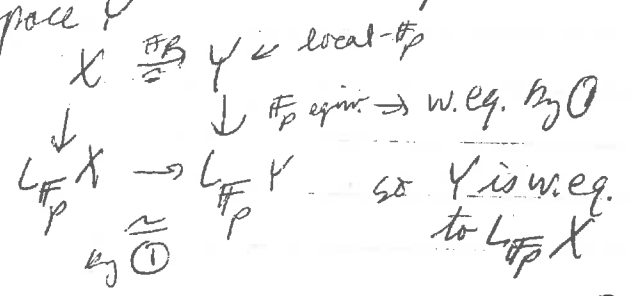 pace Y
X ≅ Y ← local-𝔽p
↓ ↓ 𝔽p equiv. → w.eq. By ①
L𝔽p X → L𝔽p Y so Y is w.eq.
≃ to L𝔽p X
by ①